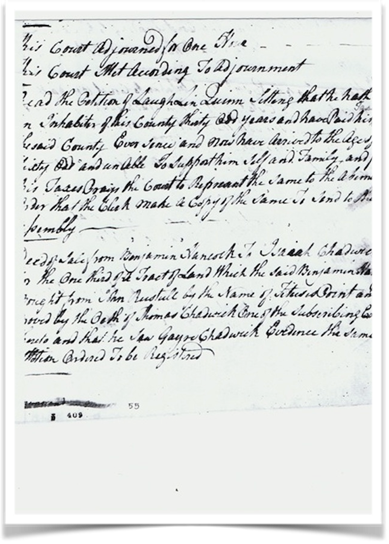 his Court adjourned for One Hour
his Court Met Acording To adjournment
Read the Petition of Laughlin Quinn Setting that he hath
an Inhabiter of this County thirty Odd years and have Paid his
the said County Ever Since and Now have arrived to the Age of
Sixty Odd and unable To Support him Self and Family, and
his Taxes Prays the Court to Represent the Same to the
Order that the Clerk Make a Copy of the Same To Send to the
ssembly
eed of Sale from Benjamin Hancock To Isaiah Chadwick
r the One third of a Tract of Land Which the Said Benjamin Ha
ought from Jan Rustull by the Name of Point an
roved by the Oath of Thomas Chadwick One of the Subscribing
and that he Saw Gayer Chadwick Evidence the Same
Ordered To be Registered
409 55